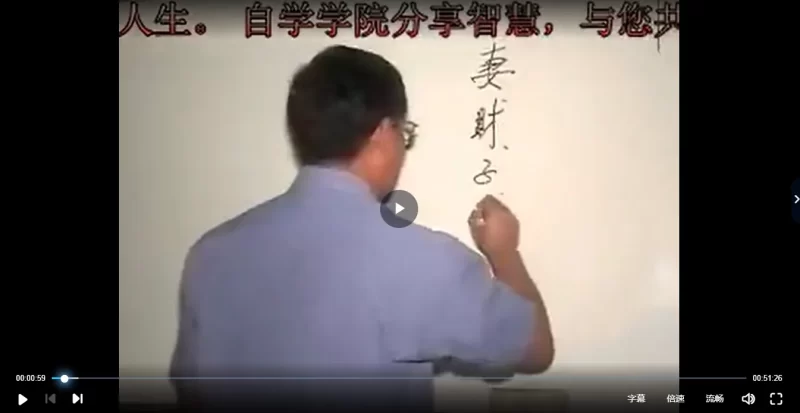 人生。 自学学院分享智慧，与您共
妻
财、
子、
00:00:59
00:51:26
字幕
倍速
流畅